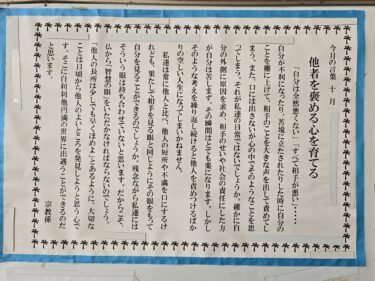 今月の言葉　十　月
他者を褒める心を育てる
「自分は全然悪くない」「すべて相手が悪い」・・・・
自分が不利になったり、苦境に立たされたりした時に自分の
ことを棚に上げて、相手のことを大きな声を出して責めてし
まう。また、口には出さないが心の中でそのようなことを思
ってしまう。それが私達の日常ではないでしょうか。確かに自
分の外側に原因を求め、相手のせいや社会の責任にした方
が自分は苦しまず、その瞬間はとても楽になります。しかし
そのような考えを繰り返し続けると他人を責めつけるばか
りの空しい人生になってしまいかねません。
私達は常に他人と比べ、他人の短所や不満を口にするけ
れども、果たして相手を見る眼と同じようにその眼をもって
自分を見ることができるのでしょうか。残念ながら私達には
そういう眼は持ち合わせていないと思います。だからこそ、
仏から「智慧の眼」をいただかなければならないのでしょう。
「他人の長所は少しでも引くほめよ」とあるように、大切な
ことは日頃から他人のよいところを発見しようと思う心で
す。そこに自利利他円満の世界に出遇うことができるのだ
と思います。
宗教係